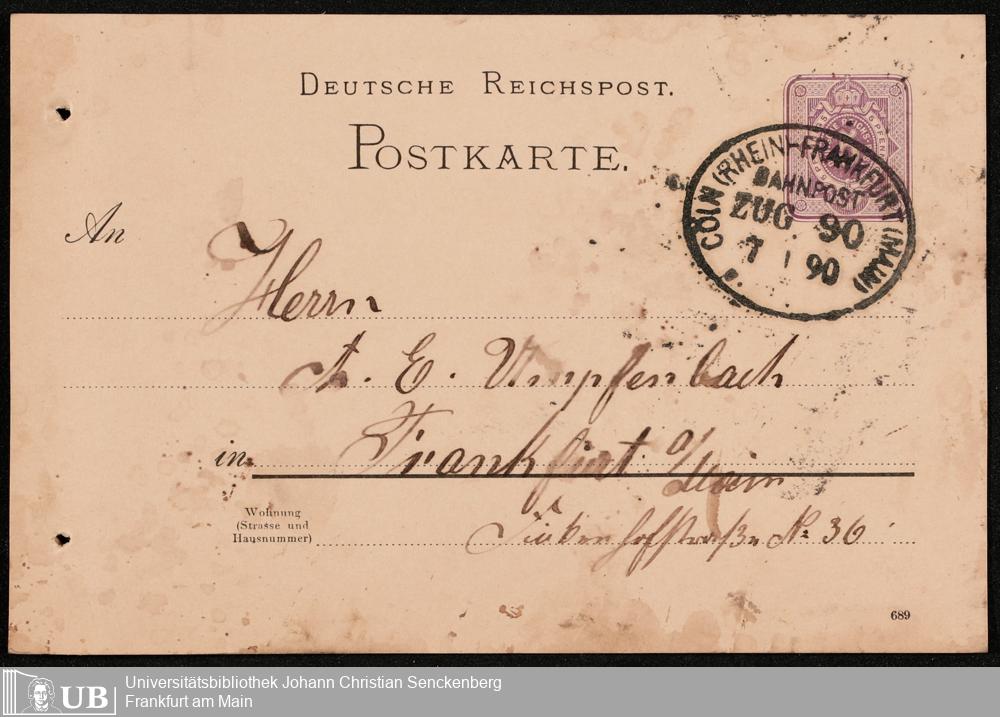 DEUTSCHE REICHSPOST.
POSTKARTE.
CÖLN (RHEIN)-FRANKFURT (MAIN)
BAHNPOST
ZUG 90
7 1 90
An
Herrn
A. E. Umpfenbach
in Frankfurt a/Main
Wohnung
(Strasse und
Hausnummer)
No 36
689
UB
Universitätsbibliothek Johann Christian Senckenberg
Frankfurt am Main